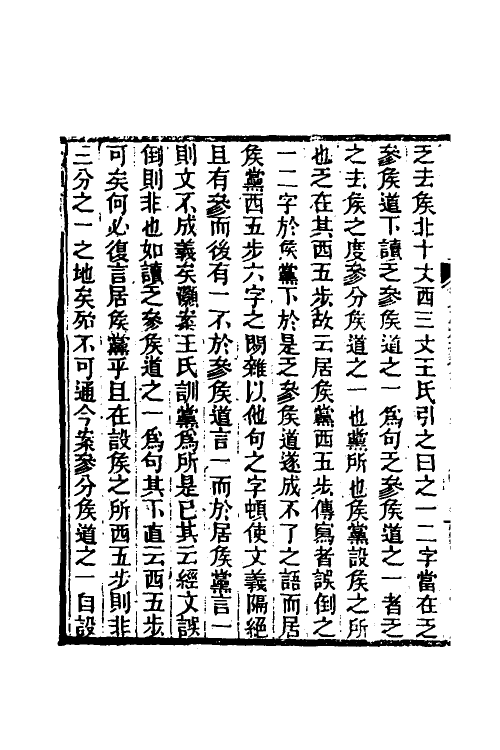 乏去矦北十丈西三丈王氏引之曰之一二字當在乏
參矦道下讀乏參矦道之一爲句乏參矦道之一者乏
之去矦之度參分矦道之一也黨所也矦黨設矦之所
也乏在其西五步故云居矦黨西五步傳寫者誤倒之
一二字於矦黨下於是乏參矦道遂成不了之語而居
矦黨西五步六字之閒雜以他句之字頓使文義隔絕
且有參而後有一不於參矦道言一而於居矦黨言一
則文不成義矣灝案王氏訓黨爲所是已其云經文誤
倒則非也如讀乏參矦道之一爲句其下直云西五步
可矣何必復言居矦黨乎且在設矦之所西五步則非
三分之一之地矣殆不可通今案參分矦道之一自設